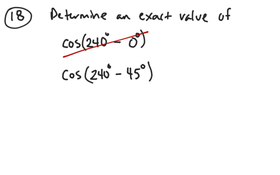 18 Determine an exact value of
cos(240° - 0°)
cos(240° - 45°)